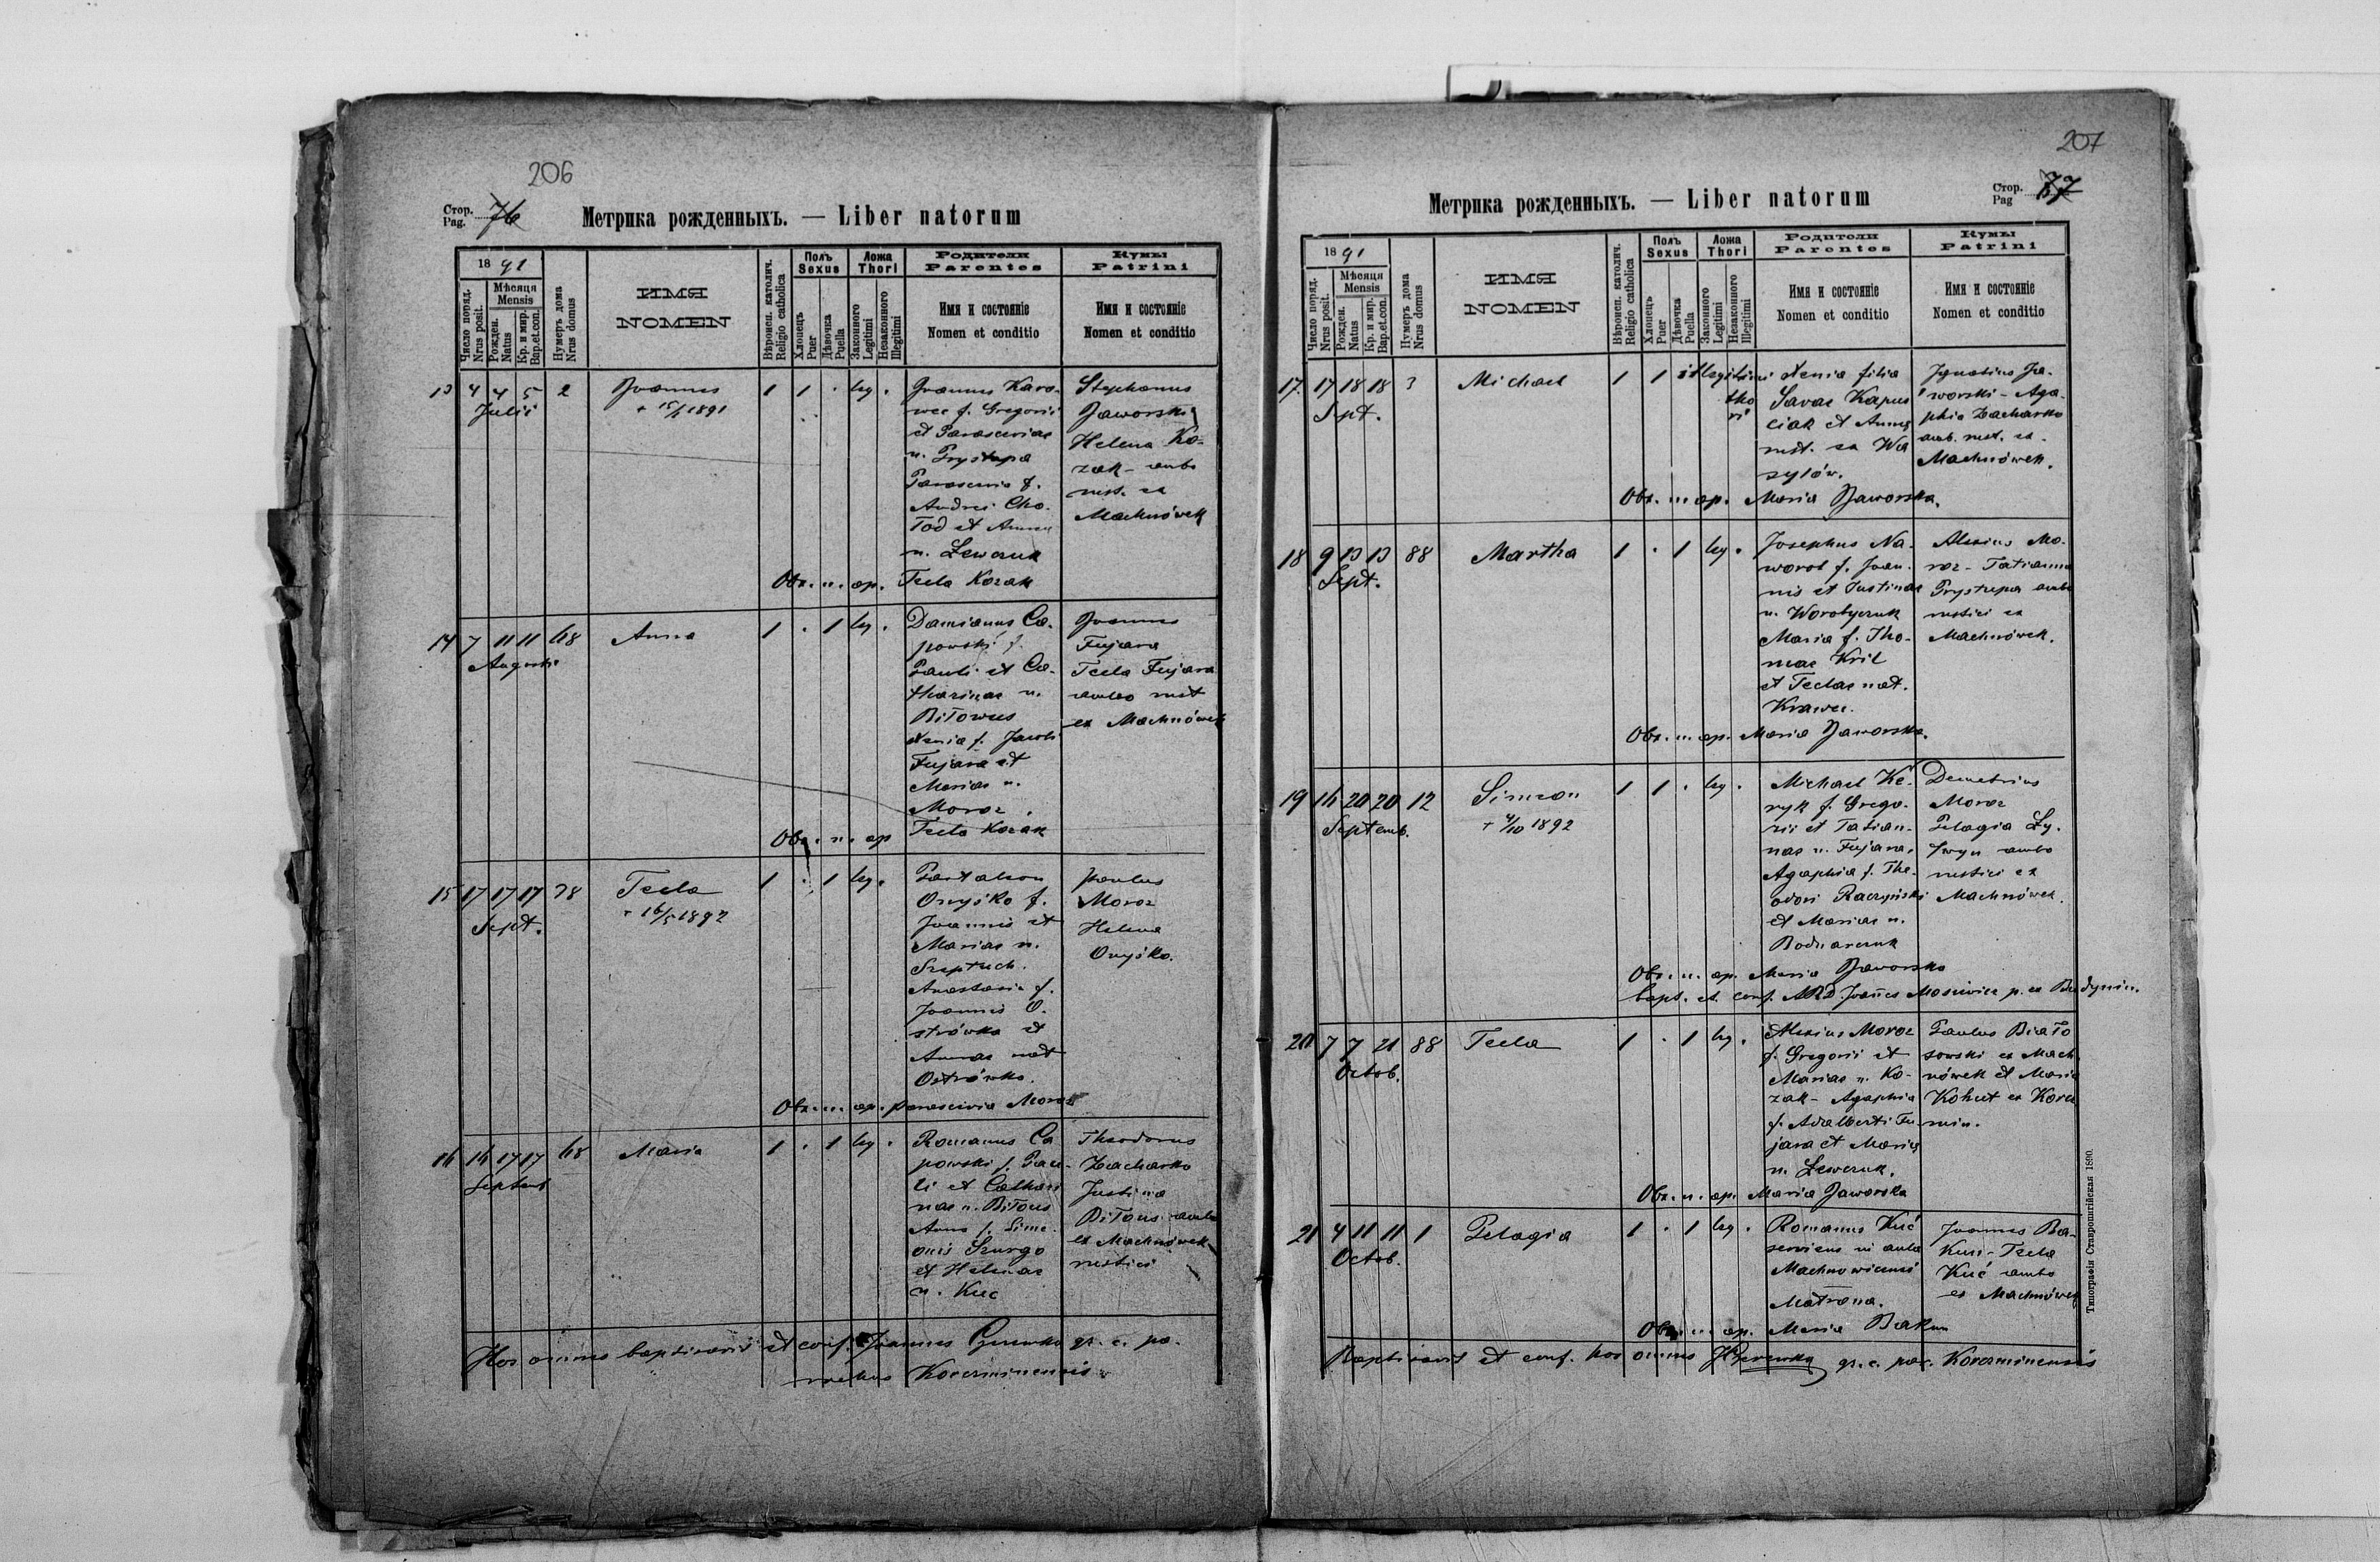 206
Стор.
Pag. 76
Метрика рожденныхъ. — Liber natorum
18 91
Число поряд.
Nrus posit.
Мѣсяця
Mensis
Рожден.
Natus
Кр. и мир.
Bap.et.con.
Нумеръ дома
Nrus domus
ИМЯ
NOMEN
Вѣроисп. католич.
Religio catholica
Полъ
Sexus
Хлопецъ
Puer
Дѣвочка
Puella
Ложа
Thori
Законного
Legitimi
Незаконного
Illegitimi
Родители
Parentes
Имя и состояніе
Nomen et conditio
Кумы
Patrini
Имя и состояніе
Nomen et conditio
13 4 4 5 2 Joannes 1 1 . leg .
Julii
Joannes Karo-
wec f. Gregorii
et Parasceviae
n. Prystupa
Parascevia f.
Andrei Cho-
łod et Annae
n. Lewczuk
Stephanus
Jaworski
Helena Ko-
zak - ambo
rust. ex
Machnówek
Obs. n. ap. Tecla Kozak
14 7 11 11 68 Anna 1 . 1 leg .
Augusti
Damianus Ca-
powski f.
Pauli et Ca-
tharinae n.
Biłowus
Xenia f. Jacobi
Fujara et
Mariae n.
Moroz.
Joannes
Fujara
Tecla Fujara
ambo rust
ex Machnówek
Obs. n. ap Tecla Kozak
15 17 17 17 78 Tecla 1 . 1 leg .
Sept. + 16/5 1892
Pantaleon
Onyśko f.
Joannis et
Mariae n.
Szeptuch.
Anastasia f.
Joannis O-
strówka et
Annae nat
Ostrówka.
Paulus
Moroz
Helena
Onyśko.
Obs. n. ap. Parascevia Moroz
16 16 17 17 68 Maria 1 . 1 leg .
Septemb
Romanus Ca
powski f. Pau-
li et Cathari
nae n. Biłous
Anna f. Sime-
onis Szurgo
et Helenae
n. Kuc
Theodorus
Zacharko
Justina
Biłous ambo
ex Machnówek
rustici
Hos omnes baptisavit et conf. Joannes gr. c. pa-
rochus Korczminensis
207
Стор.
Pag 77
Метрика рожденныхъ. — Liber natorum
18 91
Число поряд.
Nrus posit.
Мѣсяця
Mensis
Рожден.
Natus
Кр. и мир.
Bap.et.con.
Нумеръ дома
Nrus domus
ИМЯ
NOMEN
Вѣроисп. католич.
Religio catholica
Полъ
Sexus
Хлопецъ
Puer
Дѣвочка
Puella
Ложа
Thori
Законного
Legitimi
Незаконного
Illegitimi
Родители
Parentes
Имя и состояніе
Nomen et conditio
Кумы
Patrini
Имя и состояніе
Nomen et conditio
17. 17 18 18 3 Michael 1 1 illegitimi
Sept. tho
ri
Xenia filia
Savae Kapus
ciak et Annae
rust. ex Wa
sylów.
Ignatius Ja-
worski - Aga-
phia Zacharko
amb. rust. ex
Machnówek.
Obs. n. ap. Maria Jaworska.
18 9 13 13 88 Martha 1 . 1 leg .
Sept.
Josephus Na-
worol f. Joan-
nis et Justinae
n. Worobyczuk
Maria f. Tho-
mae Kril
et Teclae nat.
Krawec.
Alexius Mo-
roz - Tatianna
Prystupa ambo
rustici ex
Machnówek.
Obs. n. ap. Maria Jaworska.
19 16 20 20 12 Simeon 1 1 . leg .
Septemb. + 4/10 1892
Michael Ke-
ryk f. Grego-
rii et Tatian-
nae n. Fujara,
Agaphia f. The-
odori Raczyński
et Mariae n.
Bodnarczuk
Demetrius
Moroz
Pelagia Ly-
ambo
rustici ex
Machnówek.
Obs. n. ap. Maria Jaworska
bapt. et conf. ARD. Joannes Mosiewicz p. ex Budynin.
20 7 7 21 88 Tecla 1 . 1 leg .
Octob.
Alexius Moroz
f. Gregorii et
Mariae n. Ko-
zak - Agaphia
f. Adalberti Fu-
jara et Maria
n. Lewczuk.
Paulus Biało
sowski ex Mach
nówek et Maria
Kohut ex Korcz
min.
Obs. n. ap. Maria Jaworska
21 4 11 11 1 Pelagia 1 . 1 leg .
Octob.
Romanus Kuć
serviens in aula
Machnowicensi
Matrona.
Joannes Ba-
kun - Tecla
Kuć ambo
ex Machnówek
Obs. n. ap. Maria Bakun
Baptisavit et conf. hos omnes gr. c. par. Korczminensis
Типографія Ставропигійская 1890.